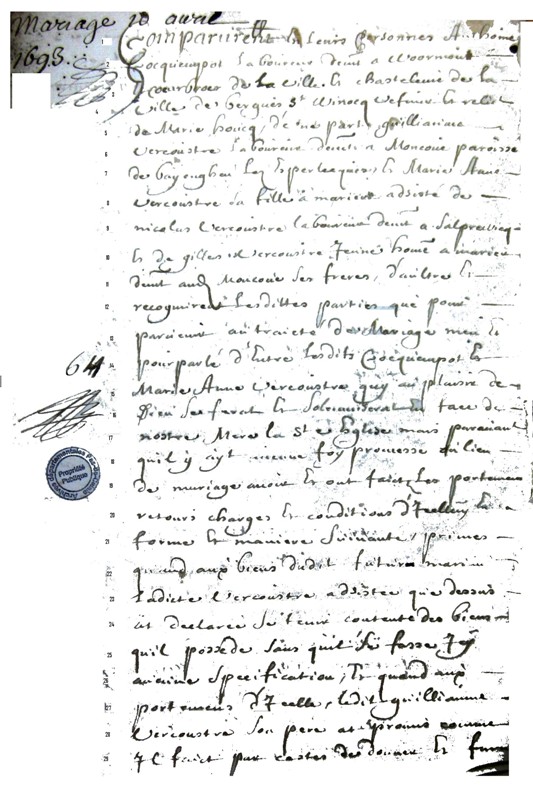 Mariage 10 avril
1693.
Comparurent En Leurs Personnes Anthoine
Cocquempot Laboureur demt a Woormout
de la ville, Et Chastelenie de la
ville de bergues St Winocq vefvier Et relict
de Marie houcq, d'une part, guilliaume
Vercoustre Laboureur demt a Moncoue paroisse
de bayenghem Lez Esperlecques, Et Marie Anne
Vercoustre sa fille a marier adsisté de
nicolas Vercoustre laboureur demt a Salpruicq
Et de gilles Vercoustre Jeune home a marier
demt aud Moncoue ses freres, d'aultre Et
recognurent Lesdittes parties que pour
parvenir au traicté de Mariage meu Et
pourparlé d'Entre Lesdits Cocquempot Et
64
Marie Anne Vercoustre quy au plaisir de
Dieu se ferat Et Solemniserat en face de
nostre Mere la Ste Eglise mais paravant
quil y ayt aucune foy promesse ou lien
de mariage avoir Et ont faict Les portemens
retours charges Et conditions d'Icelluy En la
forme Et maniere Suivante, primes
quand aux biens dudit futur mariant
Ladicte Vercoustre adsistee que dessus
at declaree se tenir contente des biens
quil possede sans quil s'en fasse Icy
aucune Specification, Et quand aux
portemens d'Icelle, Ledit guilliaume
Vercoustre son pere at promis comme
Il faict par cestes de donner Et furnir
Archives départementales Pas-de-Calais
Propriété
Publique